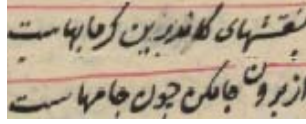 نقشهای کاندرین کرمابهاست
از برون جامکن چون جامهاست